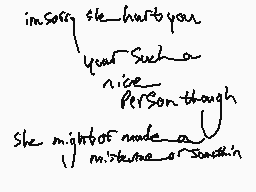 im sorry she hurt you
your such a
nice
Person though
She might of made a
mistake or somthin